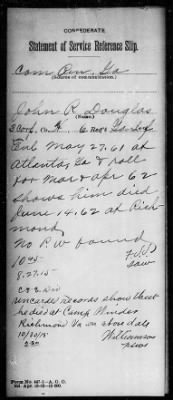 CONFEDERATE
Statement of Service Reference Slip.
Com Pen, Ga
(Source of communication.)
John R Douglas
(Name.)
Corp, Co. 6 Reg't Ga Inf
Enl May 27, 61 at
Atlanta, Ga & roll
for Mar & Apr 62
shows him died
June 14. 62 at Rich
mond,
No P W found
8.27.15
C & E Div
uncarded records show that
he died at Camp Winder
Richmond Va on above date
10/30/15
Williamson
Form No. A. G. O.